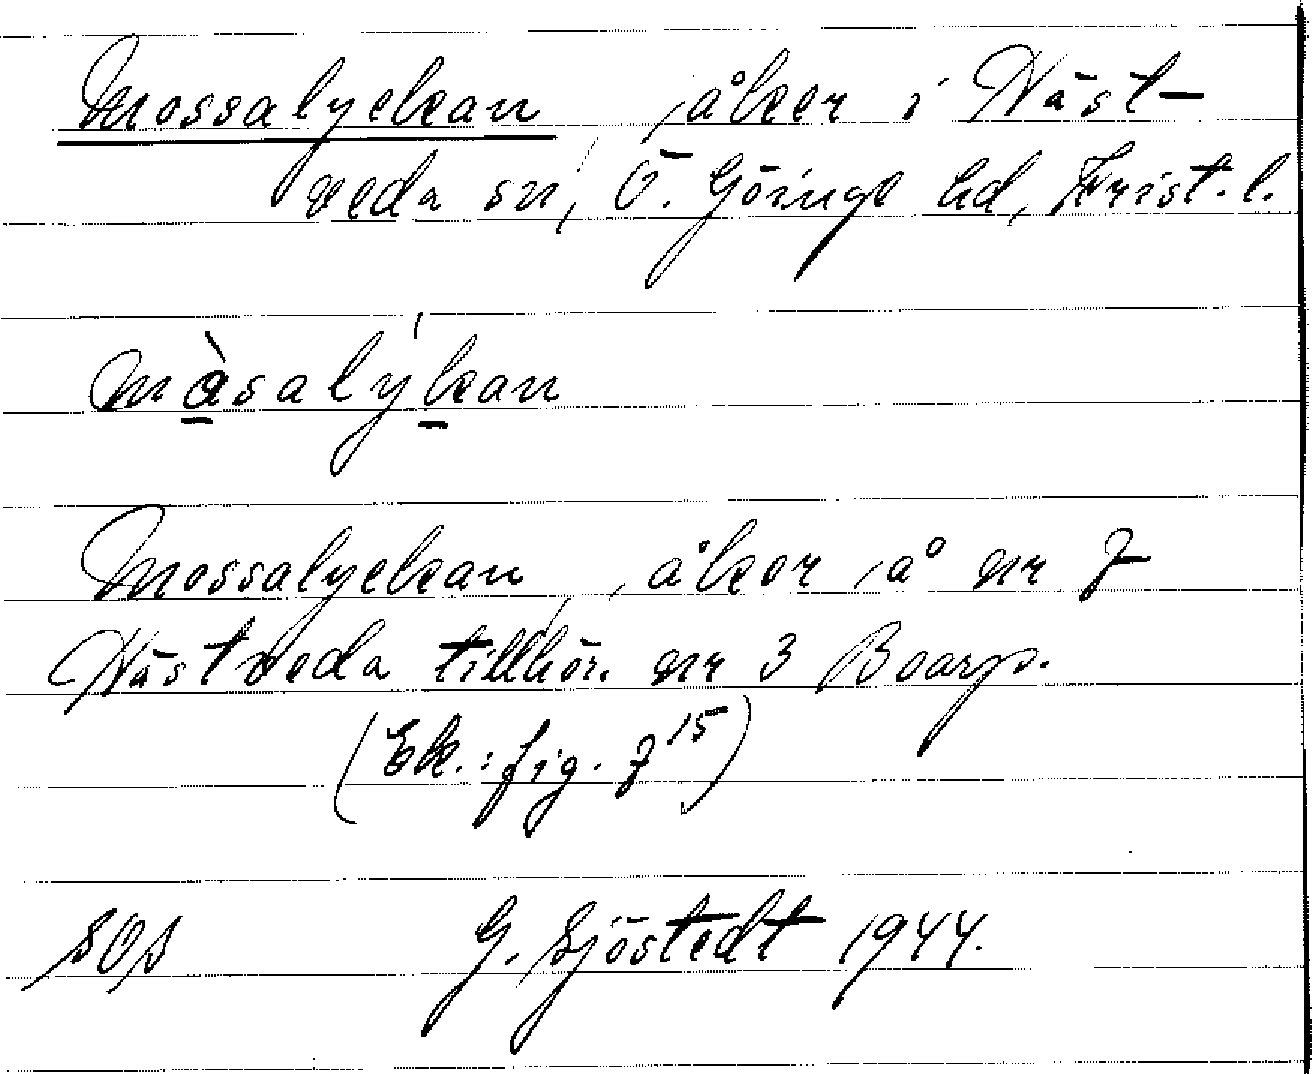 Mossalyckan, åker i Näst-
veda sn, Ö. Göinge hd, Krist. l.
màsalýkan
Mossalyckan, åker å nr 7
Nästveda tillhör. nr 3 Boarp.
(Ek.: fig. 7 15)
G. Sjöstedt 1944.